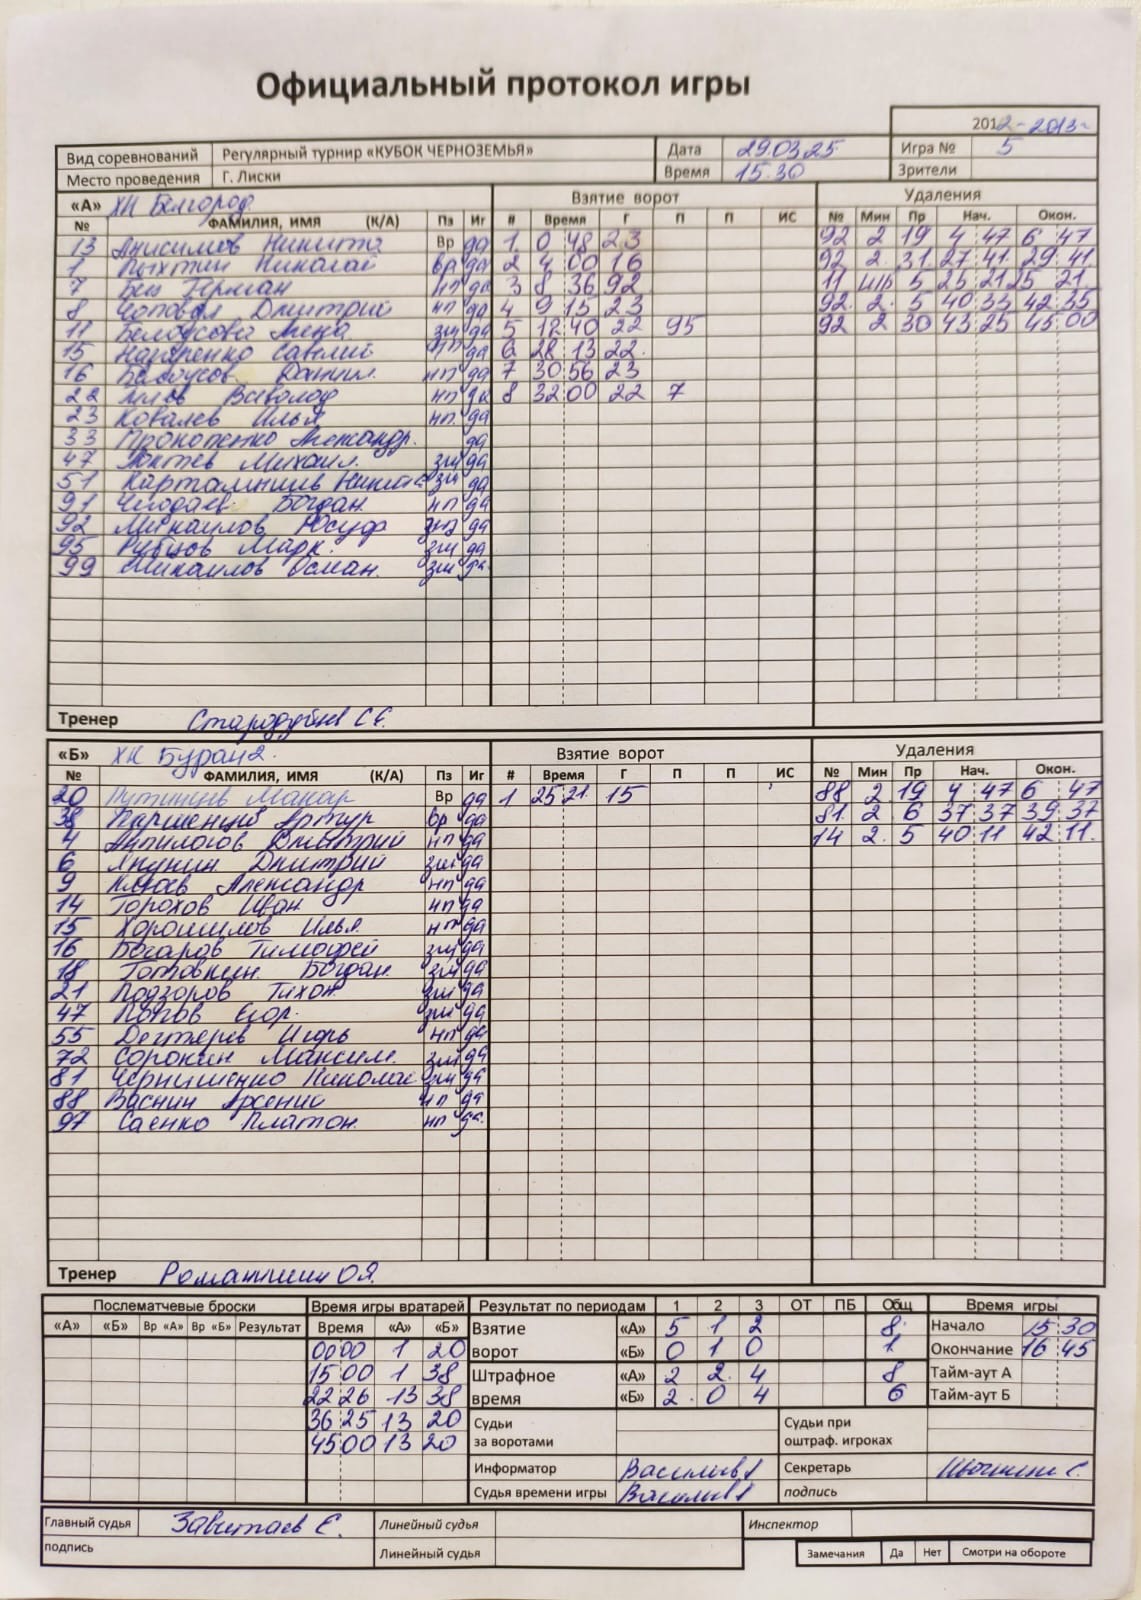 Официальный протокол игры
2012-2013г
Вид соревнований Регулярный турнир «КУБОК ЧЕРНОЗЕМЬЯ» Дата 29.03.25 Игра № 5
Место проведения Г. Лиски Время 15.30 Зрители
«А» ХК Белгород Взятие ворот Удаления
№ ФАМИЛИЯ, ИМЯ (К/А) Пз Иг # Время Г П П ИС № Мин Пр Нач. Окон.
13 Анисимов Никита Вр да 1. 0 48 23 92 2 19 4 47 6 47
1 Пыхтин Николай вр да 2 4 00 16 92 2. 31 27 41 29 41
7 Бей Герман нп да 3 8 36 92 11 ш/б 5 25 21 25 21.
8 Дмитрий нп да 4 9 15 23 92. 2. 5 40 33 42 35
11 Белоусова зщ да 5 12 40 22 95 92 2 30 43 25 45 00
15 Назаренко Савелий нп да 6 28 13 22.
16 Белоусов Даниил. нп да 7 30 56 23
22 Всеволод нп да 8 32 00 22 7
23 Ковалев Илья нп. да
33 Прокопенко Александр. да
47 Михаил. зщ да
51 Никита зщ да
91 Богдан нп да
92 Микаилов Юсуф да
95 Рубцов Марк. зщ да
99 Микаилов Осман. зщ да
Тренер Стародубцев С.Е.
«Б» ХК Буран 2. Взятие ворот Удаления
№ ФАМИЛИЯ, ИМЯ (К/А) Пз Иг # Время Г П П ИС № Мин Пр Нач. Окон.
20 Путинцев Макар Вр да 1 25 21. 15 88 2 19 4 47 6 47
38 Артур вр да 81. 2 6 37 37 39 37
4 Анпилогов Дмитрий нп да 14 2. 5 40 11 42 11.
6 Янунин Дмитрий зщ да
9 Клюев Александр нп да
14 Горохов Иван нп да
15 Хорошилов Илья нп да
16 Бочаров Тимофей зщ да
18 Готовкин. Богдан. зщ да
21 Подзоров Тихон зщ да
47 Попов Егор. зщ да
55 Дегтярев Игорь нп да
72 Сорокин Максим. зщ да
81 Чернышенко Николай зщ да
88 Васнин Арсений нп да
97 Саенко Платон. нп да.
Тренер Романишин О.Я.
Послематчевые броски Время игры вратарей Результат по периодам 1 2 3 ОТ ПБ Общ Время игры
«А» «Б» Вр «А» Вр «Б» Результат Время «А» «Б» Взятие «А» 5 1 2 8. Начало 15 30
00 00 1 20 ворот «Б» 0 1 0 1. Окончание 16 45
15 00 1 38 Штрафное «А» 2 2. 4 8 Тайм-аут А
22 26 13 38 время «Б» 2. 0 4 6 Тайм-аут Б
36 25 13 20 Судьи Судьи при
45 00 13 20 за воротами оштраф. игроках
Информатор Секретарь
Судья времени игры подпись
Главный судья Завитаев Е. Линейный судья Инспектор
подпись Линейный судья Замечания Да Нет Смотри на обороте